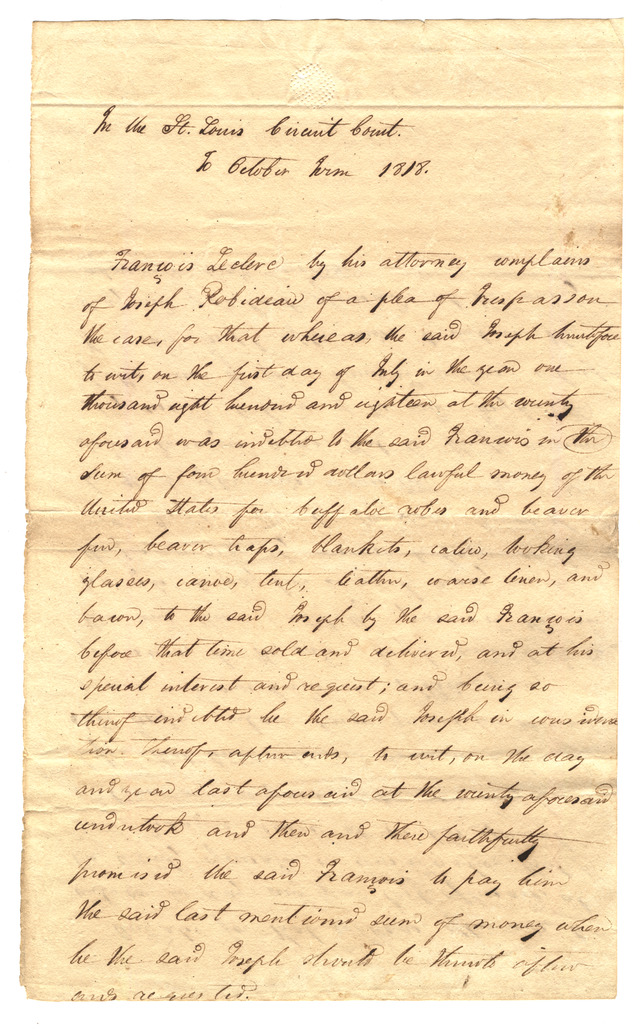 In the St. Louis Circuit Court.
To October Term 1818.
François Leclerc by his attorney complains
of Joseph Robideau of a plea of Trespass on
the case, for that whereas, the said Joseph heretofore
to wit, on the first day of July in the year one
thousand eight hundred and eighteen at the county
aforesaid was indebted to the said Francois in the
sum of four hundred dollars lawful money of the
United States for buffaloe robes and beaver
fur, beaver traps, blankets, calico, looking
glasses, canoe, tent, leather, coarse linen, and
bacon, to the said Joseph by the said François
before that time sold and delivered, and at his
special interest and request; and being so
thereof indebted he the said Joseph in considera
tion thereof, afterwards, to wit, on the day
and year last aforesaid at the county aforesaid
undertook and then and there faithfully
promised the said François to pay him
the said last mentioned sum of money when
he the said Joseph should be thereto after
wards requested.